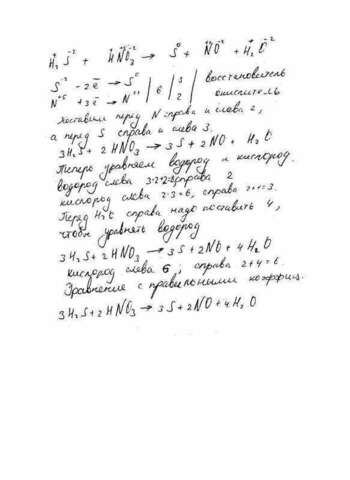 H₂⁺S⁻² + H⁺N⁺⁵O₃⁻² → S⁰ + N⁺²O⁻² + H₂⁺O⁻²
S⁻² - 2ē → S⁰ | 6 | 3 | восстановитель
N⁺⁵ + 3ē → N⁺² | | 2 | окислитель
поставим перед N справа и слева 2,
а перед S справа и слева 3.
3H₂S + 2HNO₃ → 3S + 2NO + H₂O
Теперь уравняем водород и кислород.
водород слева 3·2+2=8 справа 2
кислород слева 2·3=6, справа 2+1=3.
Перед H₂O справа надо поставить 4,
чтобы уравнять водород
3H₂S + 2HNO₃ → 3S + 2NO + 4H₂O
кислород слева 6; справа 2+4=6.
Уравнение с правильными коэффиц.
3H₂S + 2HNO₃ → 3S + 2NO + 4H₂O